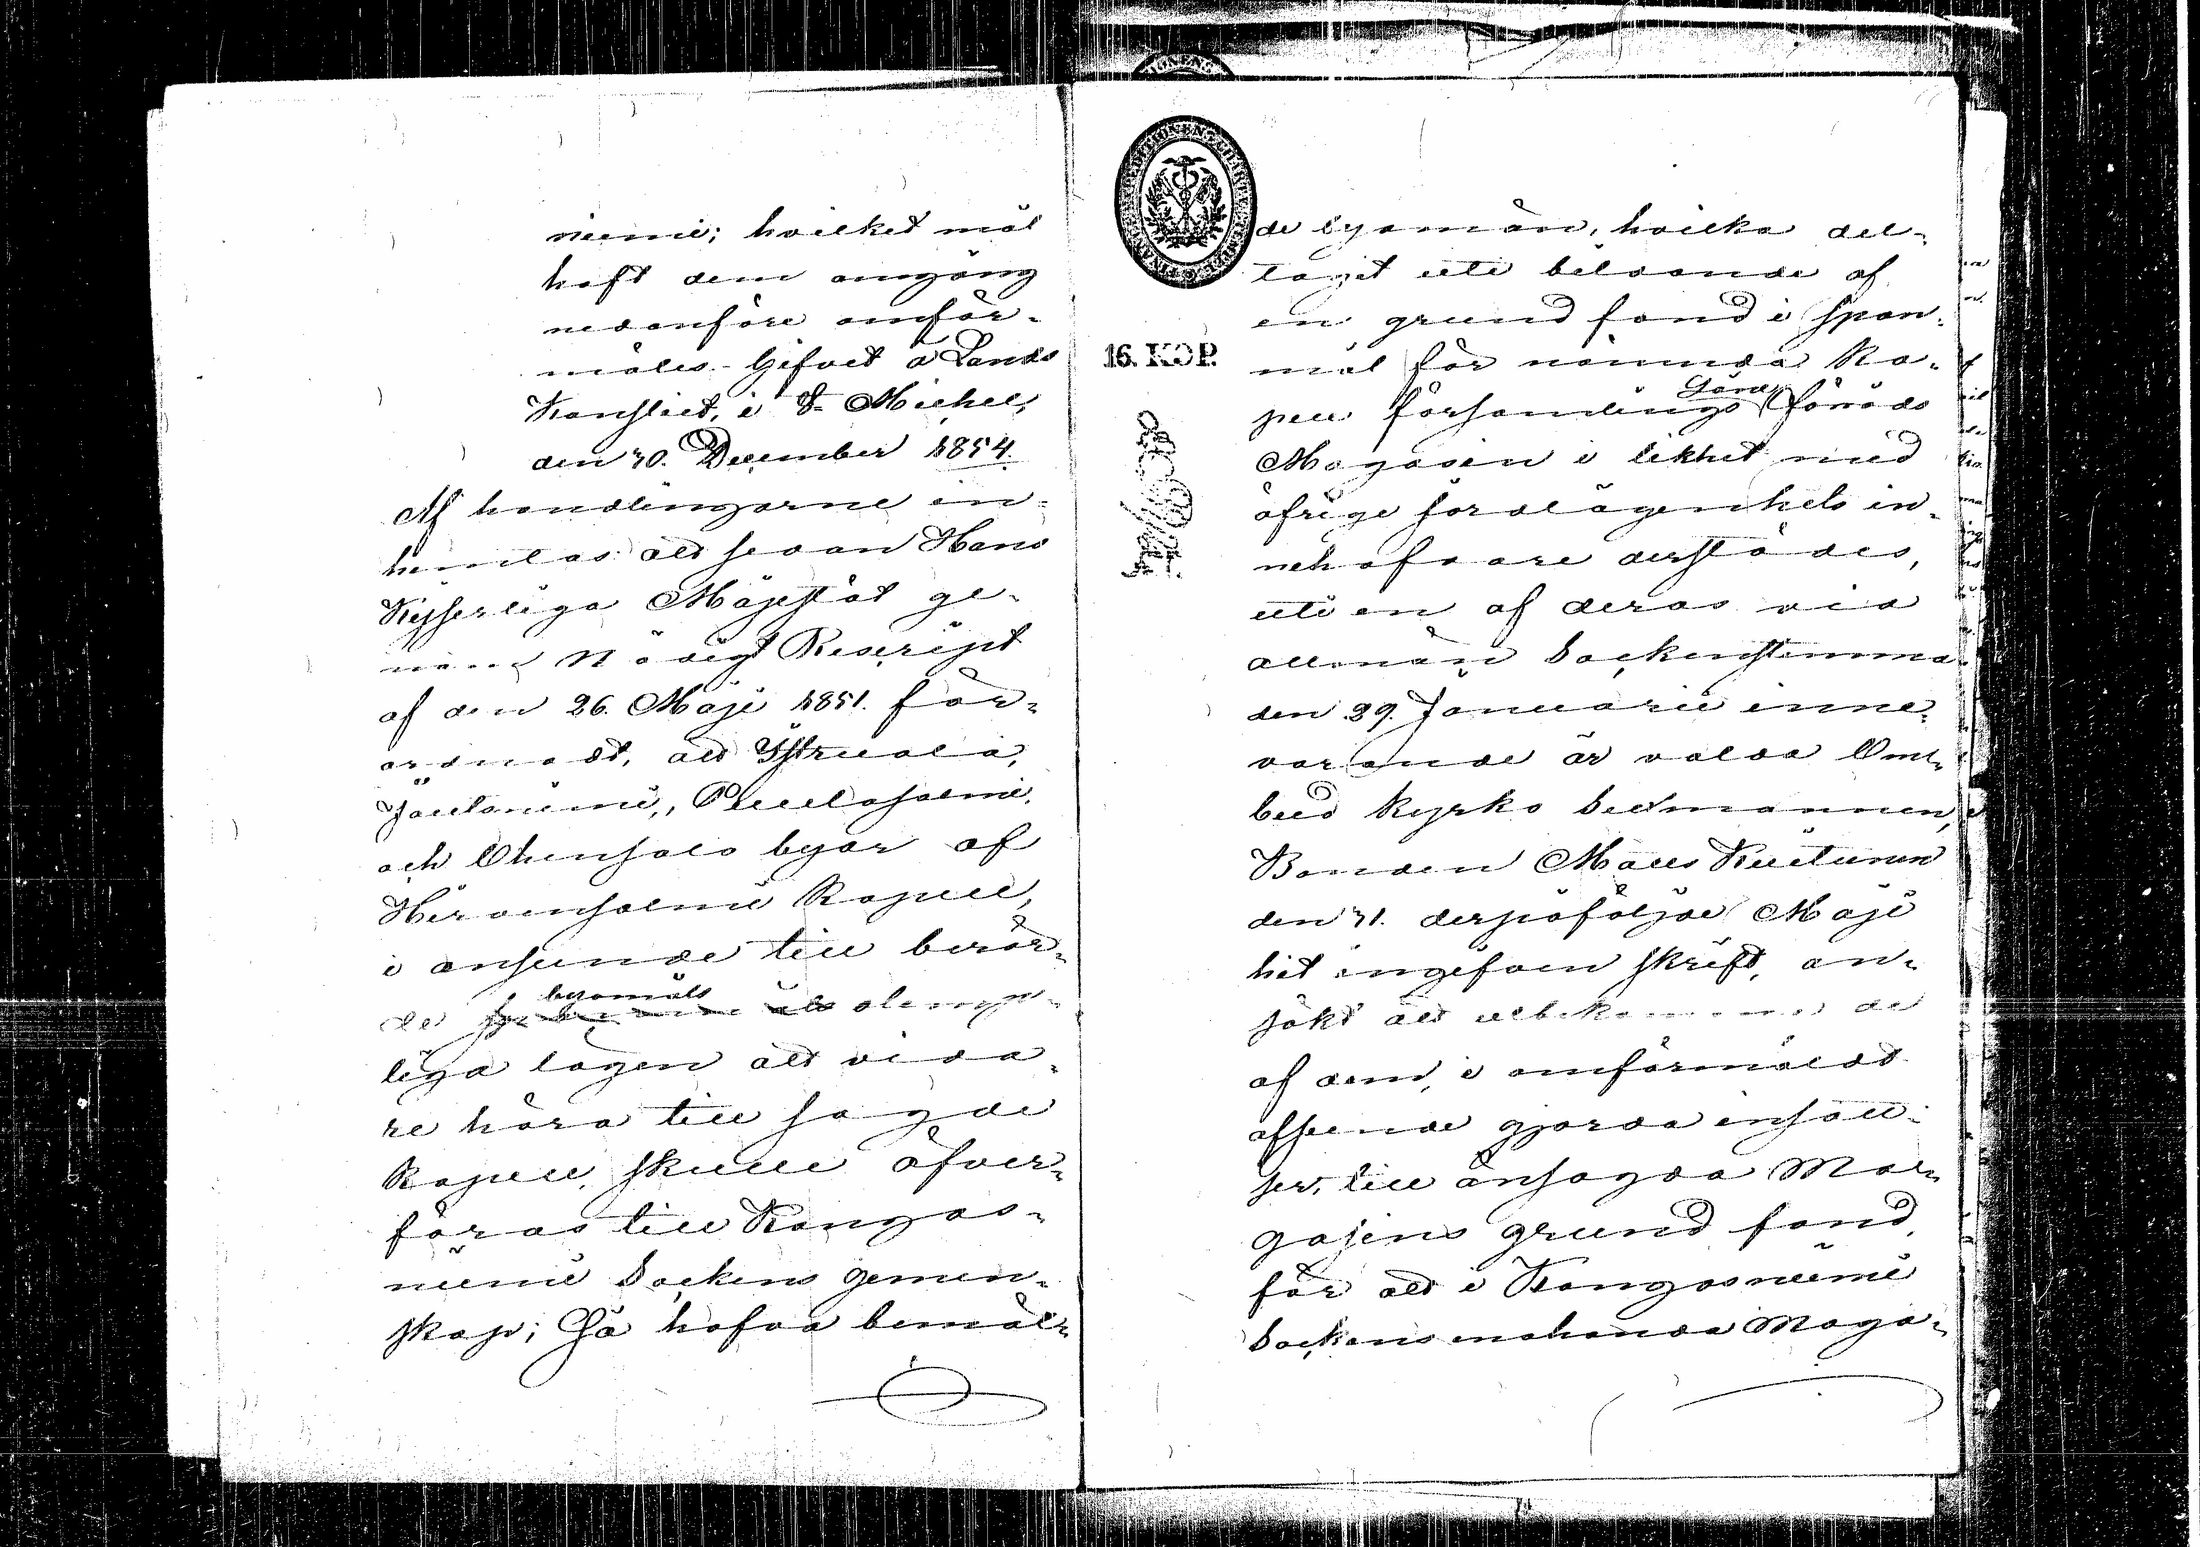 niemi; hvilket mål
haft dem omgång
nedanföre omför-
mäles. Gifvet å Lands
Kansliet, i S:t Michel,
den 30. December 1854.
Af handlingarne in-
hemtas: att sedan Hans
Kejserliga Majestät ge-
nom Nådigt Rescript
af den 26. Maji 1851. för-
ordnadt, att Ystruala,
Joutsniemi, Puulasalmi,
och Ohensalo byar af
Hirvensalmi Kapell,
i anseende till berör-
de byamäls olemp-
liga lägen att vida-
re höra till sagde
Kapell, skulle öfver-
föras till Kangas-
niemi Sockens gemen-
skap; Så hafva bemäl-
16. KOP.
de byamän, hvilka del-
tagit uti bildande af
en grund fond i Span-
mål för nämnda Ka-
pell församlings Låne förråds
Magasin i likhet med
öfrige jordlägenhets in-
nehafvare derstädes,
uti en af deras vid
allmän Sockenstämma
den 29. Januarii inne-
varande år valda Om-
bud Kyrko Sexmannen,
Bonden Maus Kiutunen
den 31. derpåföljde Maji
hit ingifven skrift, an-
sökt att utbekomma de
af dem, i omförmäldt
afseende gjorda insatt-
ser, till änsagda Ma-
gasins grund fond,
för att i Kangasniemi
Sockens enahanda Maga-